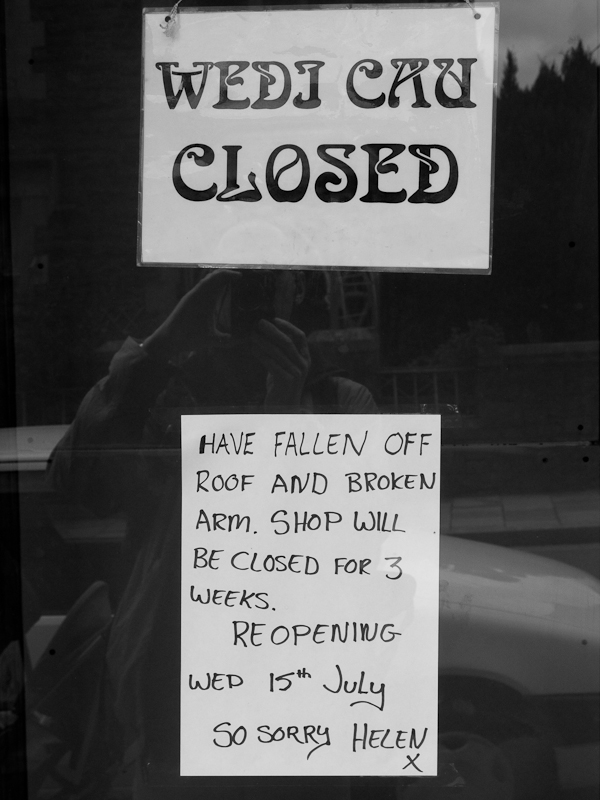 WEDI CAU
CLOSED
HAVE FALLEN OFF
ROOF AND BROKEN
ARM. SHOP WILL
BE CLOSED FOR 3
WEEKS.
REOPENING
WED 15th July
SO SORRY HELEN
X